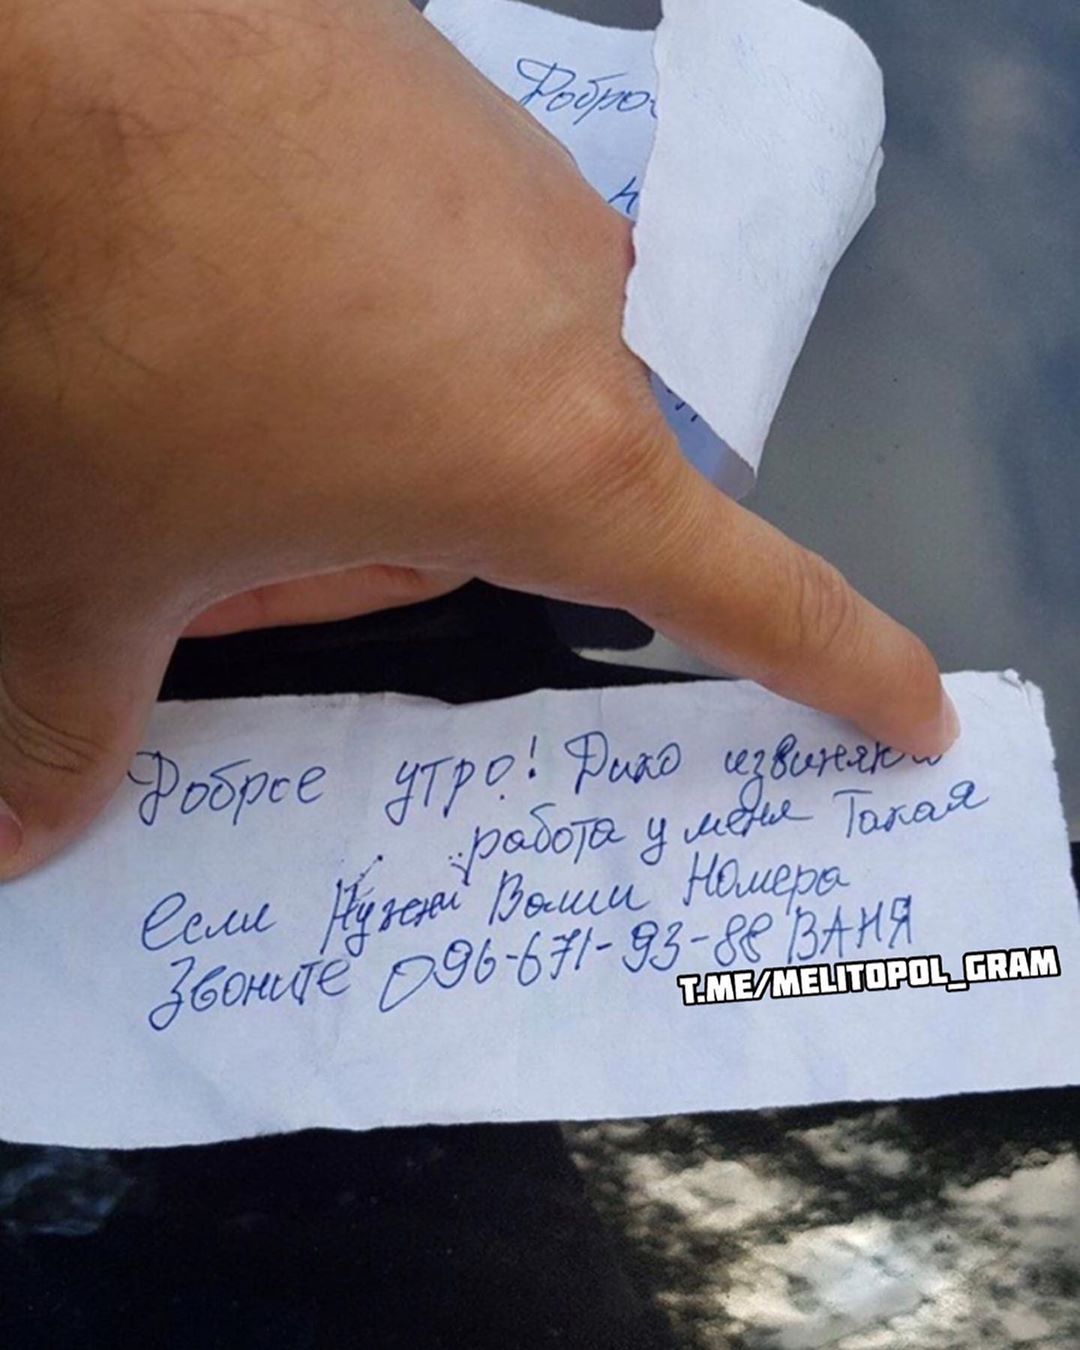 Добро
Доброе утро! Дико извиняюсь
работа у меня Такая
Если Нужны Ваши Номера
Звоните 096-671-93-88 ВАНЯ
T.ME/MELITOPOL_GRAM